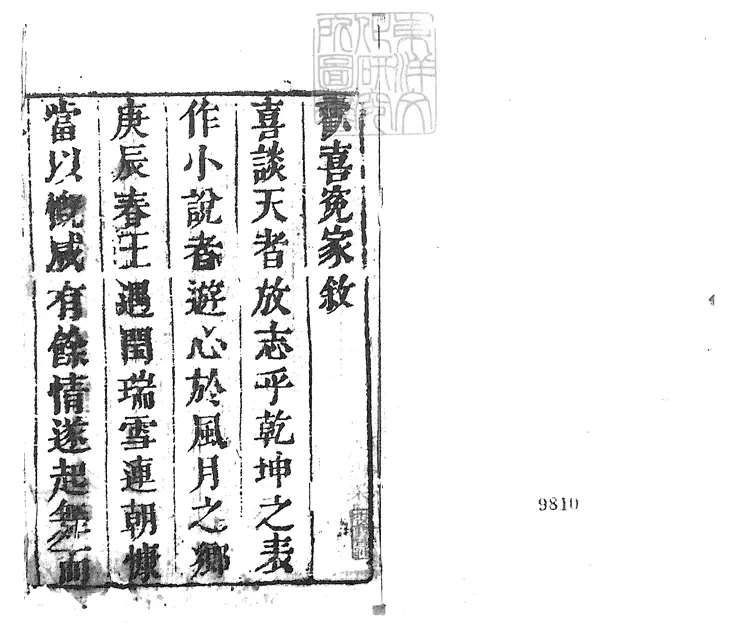 東洋文
化研究
所圖
歡喜冤家敘
喜談天者放志乎乾坤之表
作小說者遊心於風月之鄉
庚辰春王遇閏瑞雪連朝慷
當以慨感有餘情遂起舞而
9810